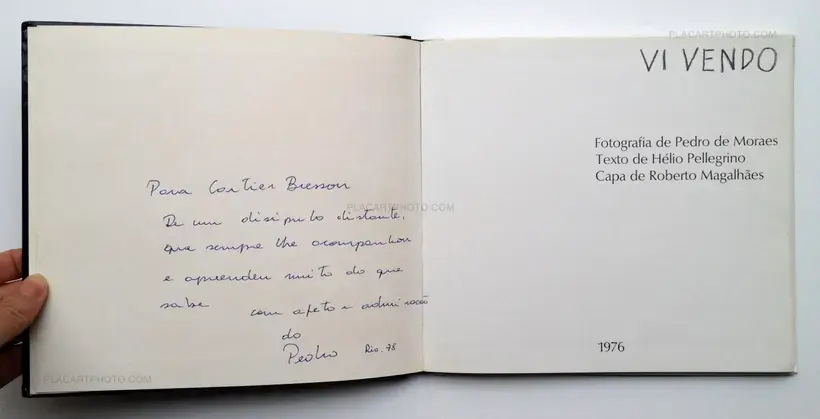 PLACARTPHOTO.COM
Para Cartier Bresson
De um disipulo distante,
que sempre lhe acompanhou
e aprendeu muito do que
sabe
com afeto e admiração
do
Pedro Rio. 78
PLACARTPHOTO.COM
PLACARTPHOTO.COM
VI VENDO
Fotografia de Pedro de Moraes
Texto de Hélio Pellegrino
Capa de Roberto Magalhães
1976
PLACARTPHOTO.COM